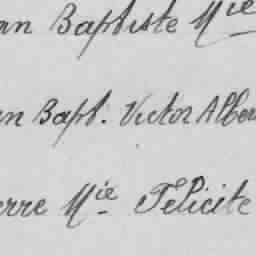 an Baptiste Mie
an Bapt. Victor Alber
erre Mie Félicité